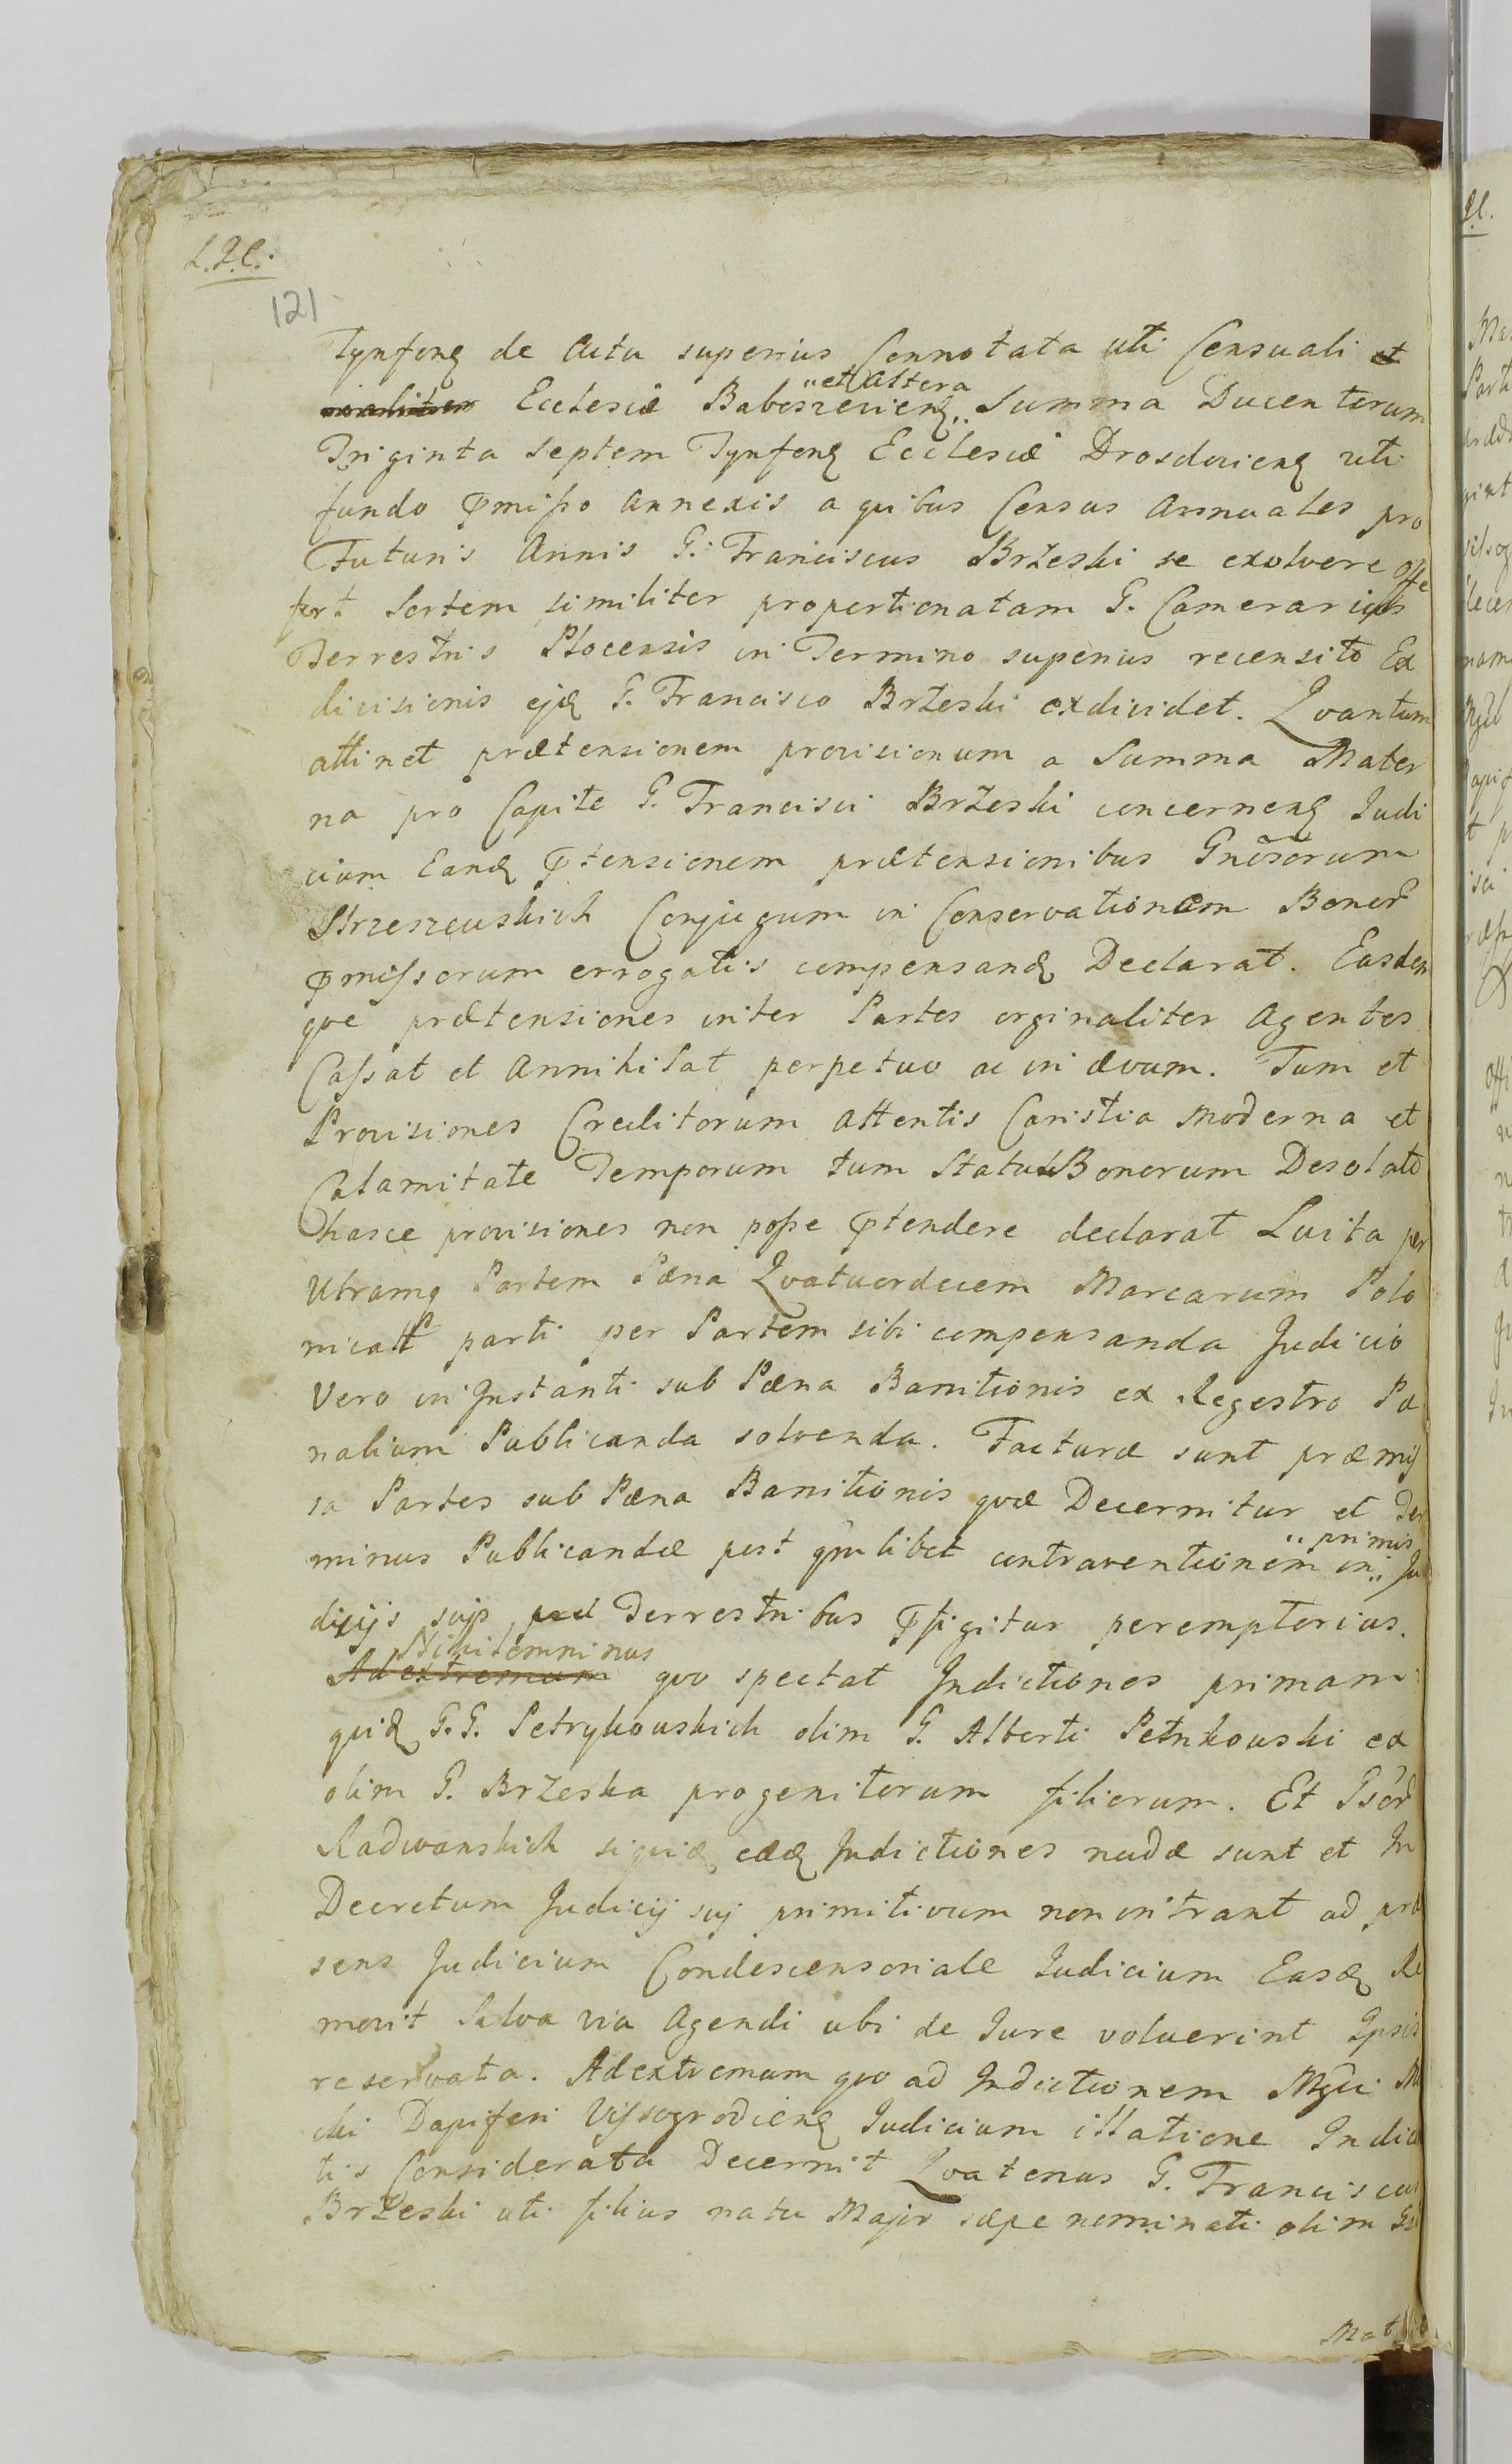 L.J.C.
121
Tynfenꝫ de actu superius Connotata uti Censuali et
Ecclesiæ Baboszevienꝫ "et altera Summa Ducentorum
Triginta Septem Tynfenꝫ Ecclesiæ Drosdovienꝫ uti
fundo p̃misso annexis a quibus Census annuales pro
Futuris Annis G. Franciscus Brżeski se exolvere offe
fert. Sortem similiter proportionatam G. Camerarius
Terrestris Plocensis in Termino superius recensito Ex
divisionis ejꝫ G. Francisco Brżeski exdividet. Qvantum
attinet prætensionem provisionum a Summa Mater
na pro Capite G. Francisci Brżeski concernenꝫ Judi
cium Eandꝫ p̃tensionem prætensionibus Gnõsorum
Strzeszewskich Conjugum in Conservationem Bonor̃
p̃missorum errogatis compensandꝫ Declarat. Easdem
qve prætensiones inter Partes orginaliter Agentes
Cassat et Annihilat perpetuo ac in ævum. Tum et
Provisiones Creditorum attentis Caristia moderna et
Calamitate Temporum tum Statu Bonorum Desolato
hasce provisiones non posse p̃tendere declarat Luita per
Utramq Partem Pæna Qvatuordecem Marcarum Polo
nicalᵖ parti per Partem sibi compensanda Judicio
Vero in Instanti sub Pæna Banitionis ex Regestro Pæ
nalium Publicanda solvenda. Facturæ sunt præmis
sa Partes sub Pæna Banitionis qvæ Decernitur et Ter
minus Publicandæ post qmlibet contraventionem in "primis Ju
dicijs suis Terrestribus p̃figitur peremptorius.
Ad extremum Nihilominus qvo spectat Indictiones primam
quidꝫ G.G. Petrykowskich olim G. Alberti Petrikowski ex
olim G. Brżeska progenitorum filiorum. Et Gsor̃
Radwanskich siquidꝫ eædꝫ Indictiones nudæ sunt et In
Decretum Judicij sui primitivum non intrant ad præ
sens Judicium Condescensoriale Judicium Easdꝫ Re
movit Salva via Agendi ubi de Jure voluerint Ipsis
reservata. Ad extremum qvo ad Indictionem Mgci
cki Dapiferi Vissogrodienꝫ Judicium illatione Indic
tis Considerata Decernit Qvatenus G. Franciscus
Brżeski uti filius natu Major sæpe nominati olim